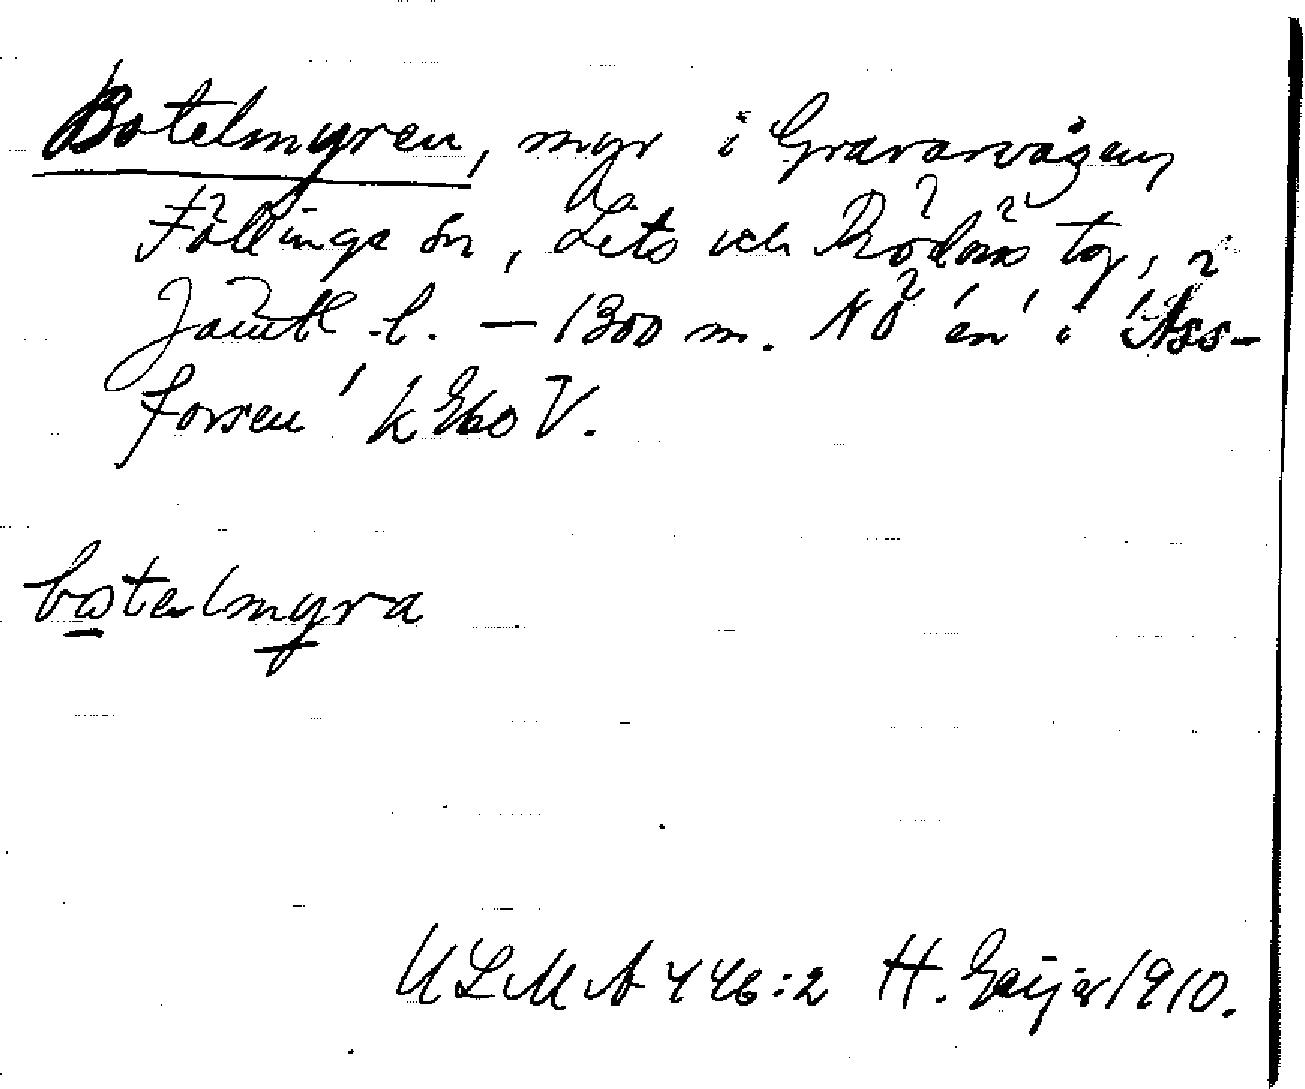 Botelmyren, myr i Gravarvågen,
Föllinge sn, Lits och Rödöns tg,
Jämtl. l. — 1300 m. NÖ 'en' i 'Åss-
forsen' k Ebo V.
botelmyra
ULMA 446:2 H. Geijer 1910.